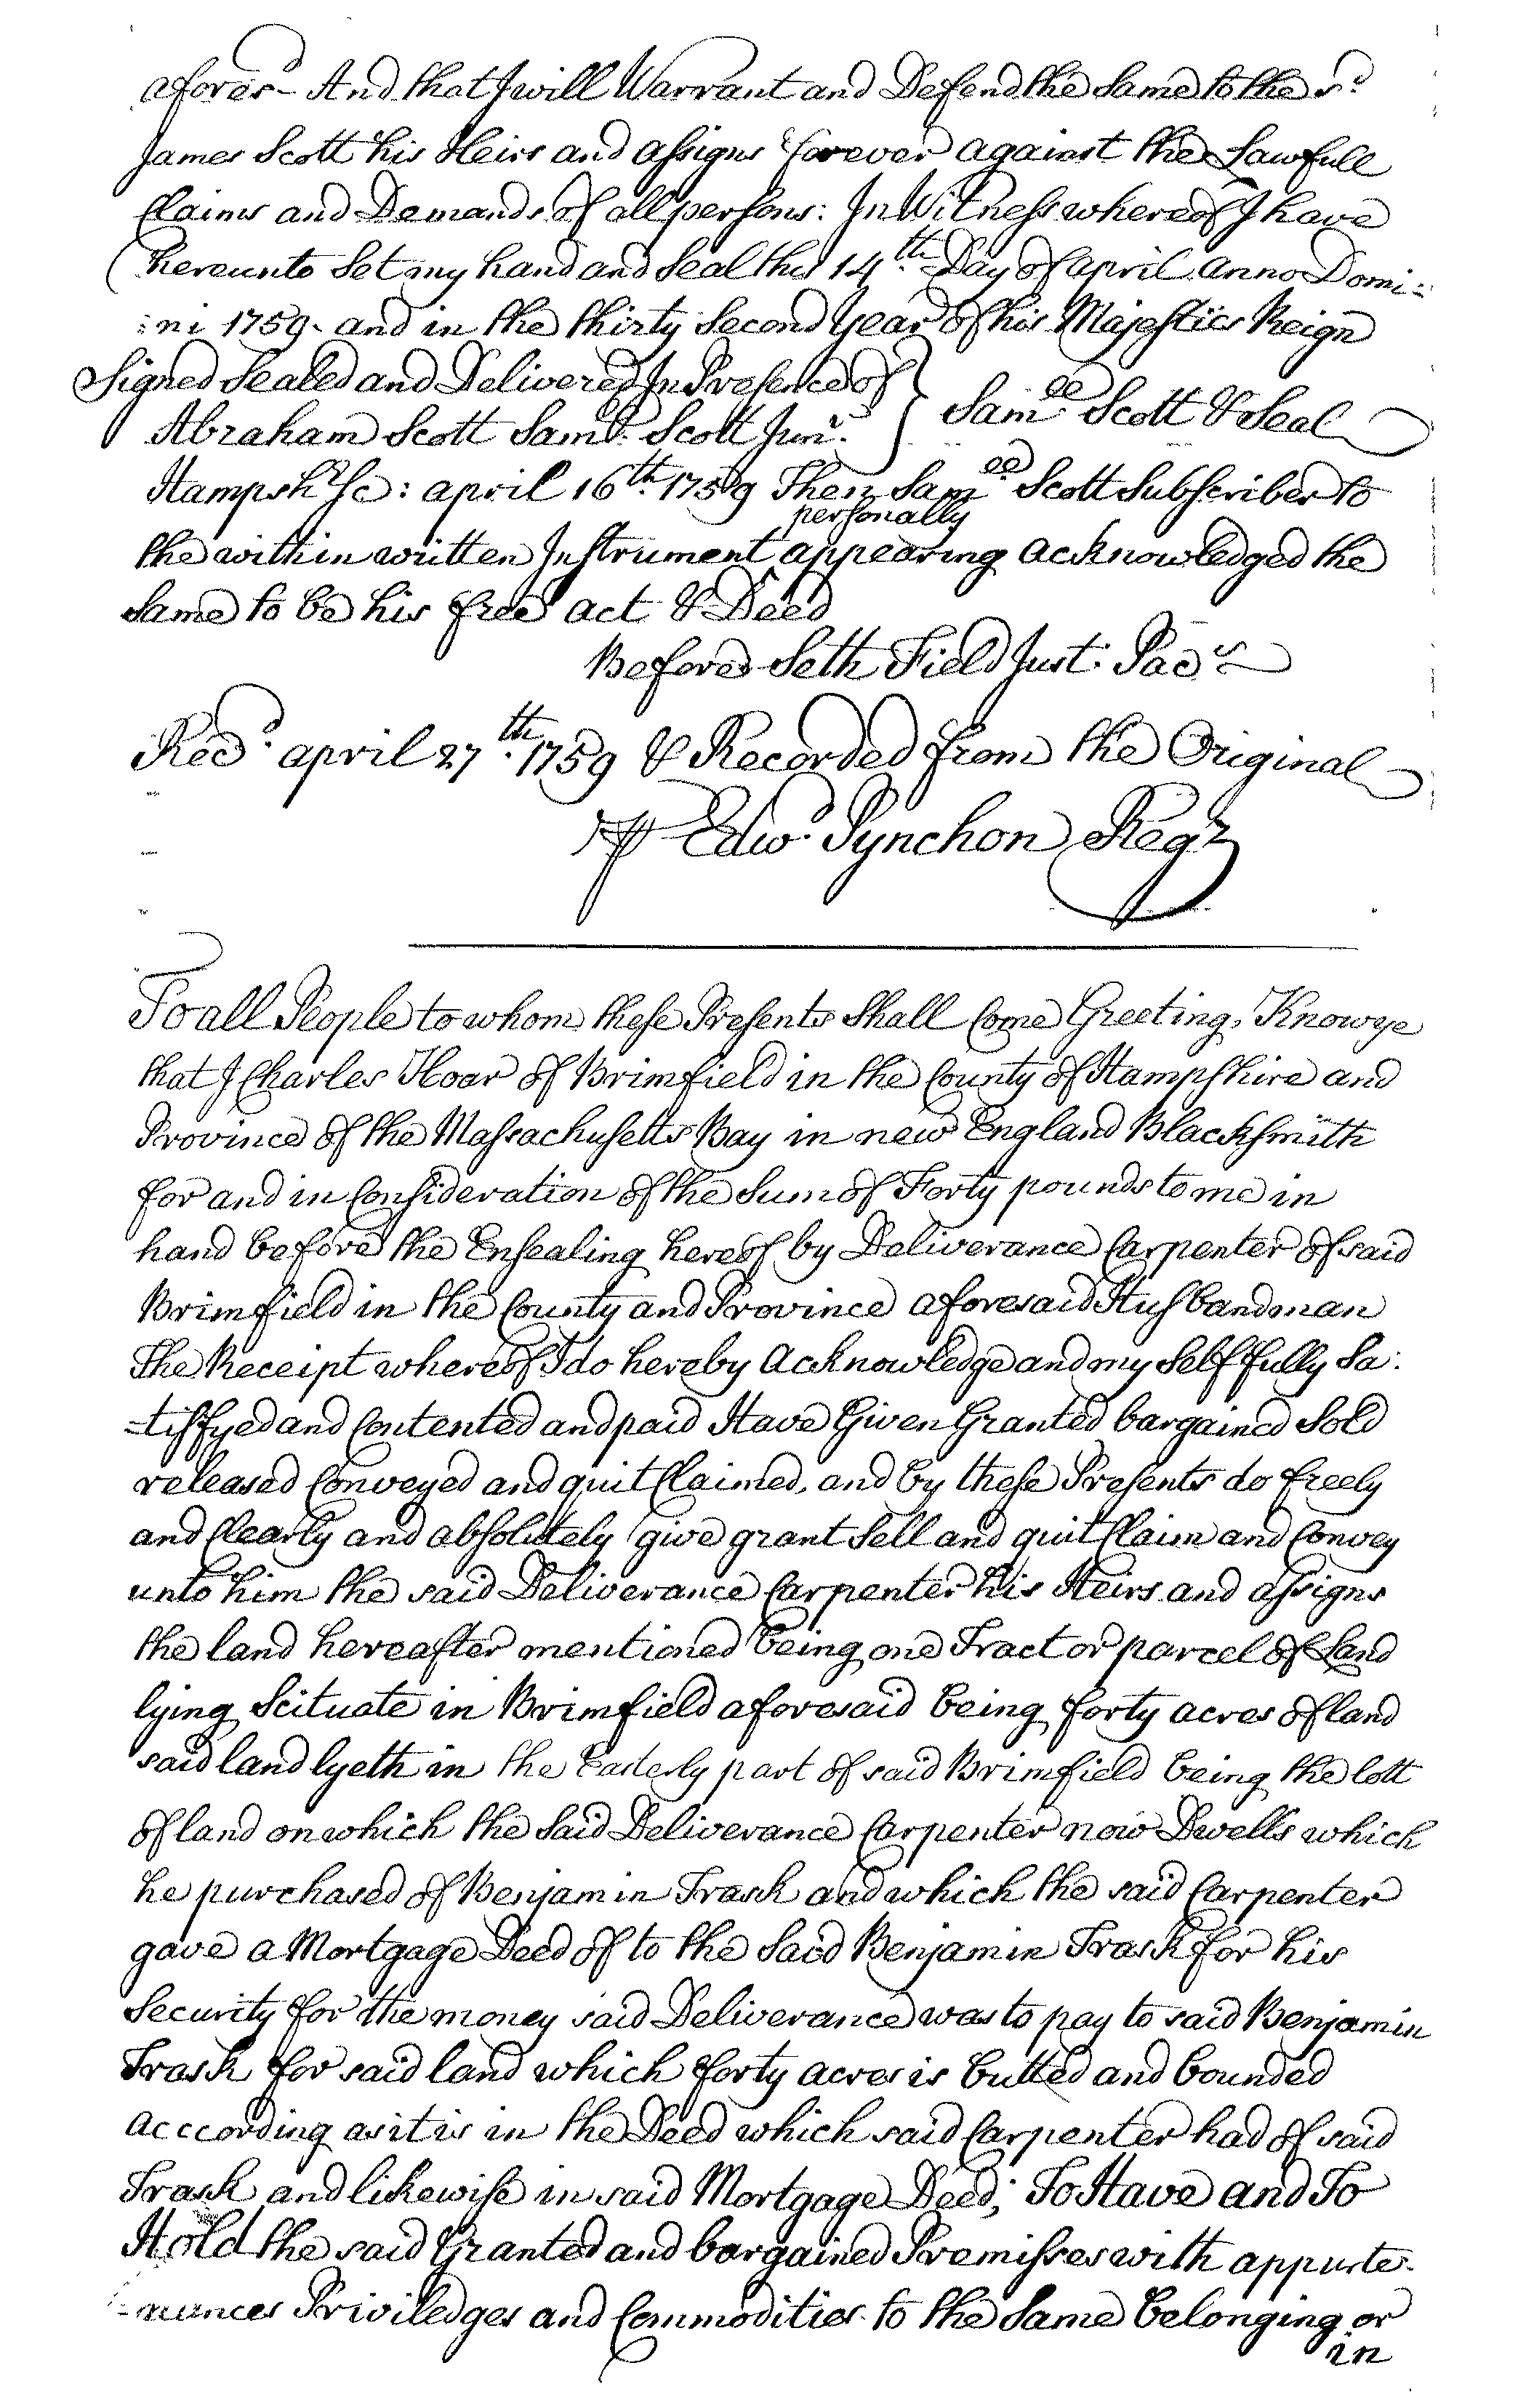 afores.d And that I will Warrant and Defend the Same to the s.d
James Scott his Heirs and assigns forever against the Lawfull
Claims and Demands of all persons: In Witness whereof I have
hereunto Set my hand and Seal this 14.th Day of april Anno Domi-
:ni 1759. and in the thirty Second Year of his Majesties Reign
Signed Sealed and Delivered In Presence of } Sam.ll Scott & Seal
Abraham Scott Sam.ll Scott Jun.r
Hampsh.r Sc: april 16.th 1759 Then Sam.ll Scott Subscriber to
personally
the within written Instrument appearing acknowledged the
Same to be his free act & Deed
Before Seth Field Just: Pac.s
Rec.d april 27.th 1759 & Recorded from the Original
⅌ Edw.d Pynchon Reg.r
To all People to whom these Presents Shall Come Greeting, Know ye
that I Charles Hoar of Brimfield in the County of Hampshire and
Province of the Massachusetts Bay in new England Blacksmith
for and in Consideration of the Sum of Forty pounds to me in
hand before the Ensealing hereof by Deliverance Carpenter of said
Brimfield in the County and Province aforesaid Husbandman
The Receipt whereof I do hereby Acknowledge and my Self fully Sa:
-tisfyed and Contented and paid Have Given Granted bargained Sold
released Conveyed and quit Claimed, and by these Presents do freely
and Clearly and absolutely give grant Sell and quit Claim and Convey
unto him the said Deliverance Carpenter his Heirs and assigns
the land hereafter mentioned being one Tract or parcel of Land
lying Scituate in Brimfield aforesaid being forty acres of land
said land lyeth in the Easterly part of said Brimfield being the lott
of land on which the Said Deliverance Carpenter now Dwells which
he purchased of Benjamin Trask and which the said Carpenter
gave a Mortgage Deed of to the Said Benjamin Trask for his
Security for the money said Deliverance was to pay to said Benjamin
Trask for said land which forty acres is butted and bounded
acccording as it is in the Deed which said Carpenter had of said
Trask and likewise in said Mortgage Deed; To Have and To
Hold the said Granted and bargained Premisses with appurte-
-nances Priviledges and Commodities to the Same belonging or
in